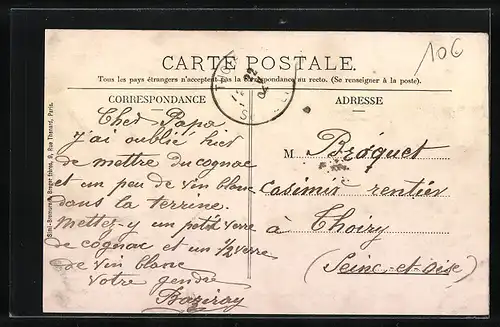 10€
CARTE POSTALE.
Tous les pays étrangers n'acceptent pas la correspondance au recto. (Se renseigner à la poste).
CORRESPONDANCE
ADRESSE
Cher Papa
j'ai oublié hier
de mettre du cognac
et un peu de vin blanc
dans la terrine.
Mettez-y un petit verre
de cognac et un 1/2 verre
de vin blanc
Votre gendre
M Bréquet
Casimir rentier
à Thoiry
(Seine-et-Oise)
Simili-Bromure A. Breger frères, 9, Rue Thénard, Paris.